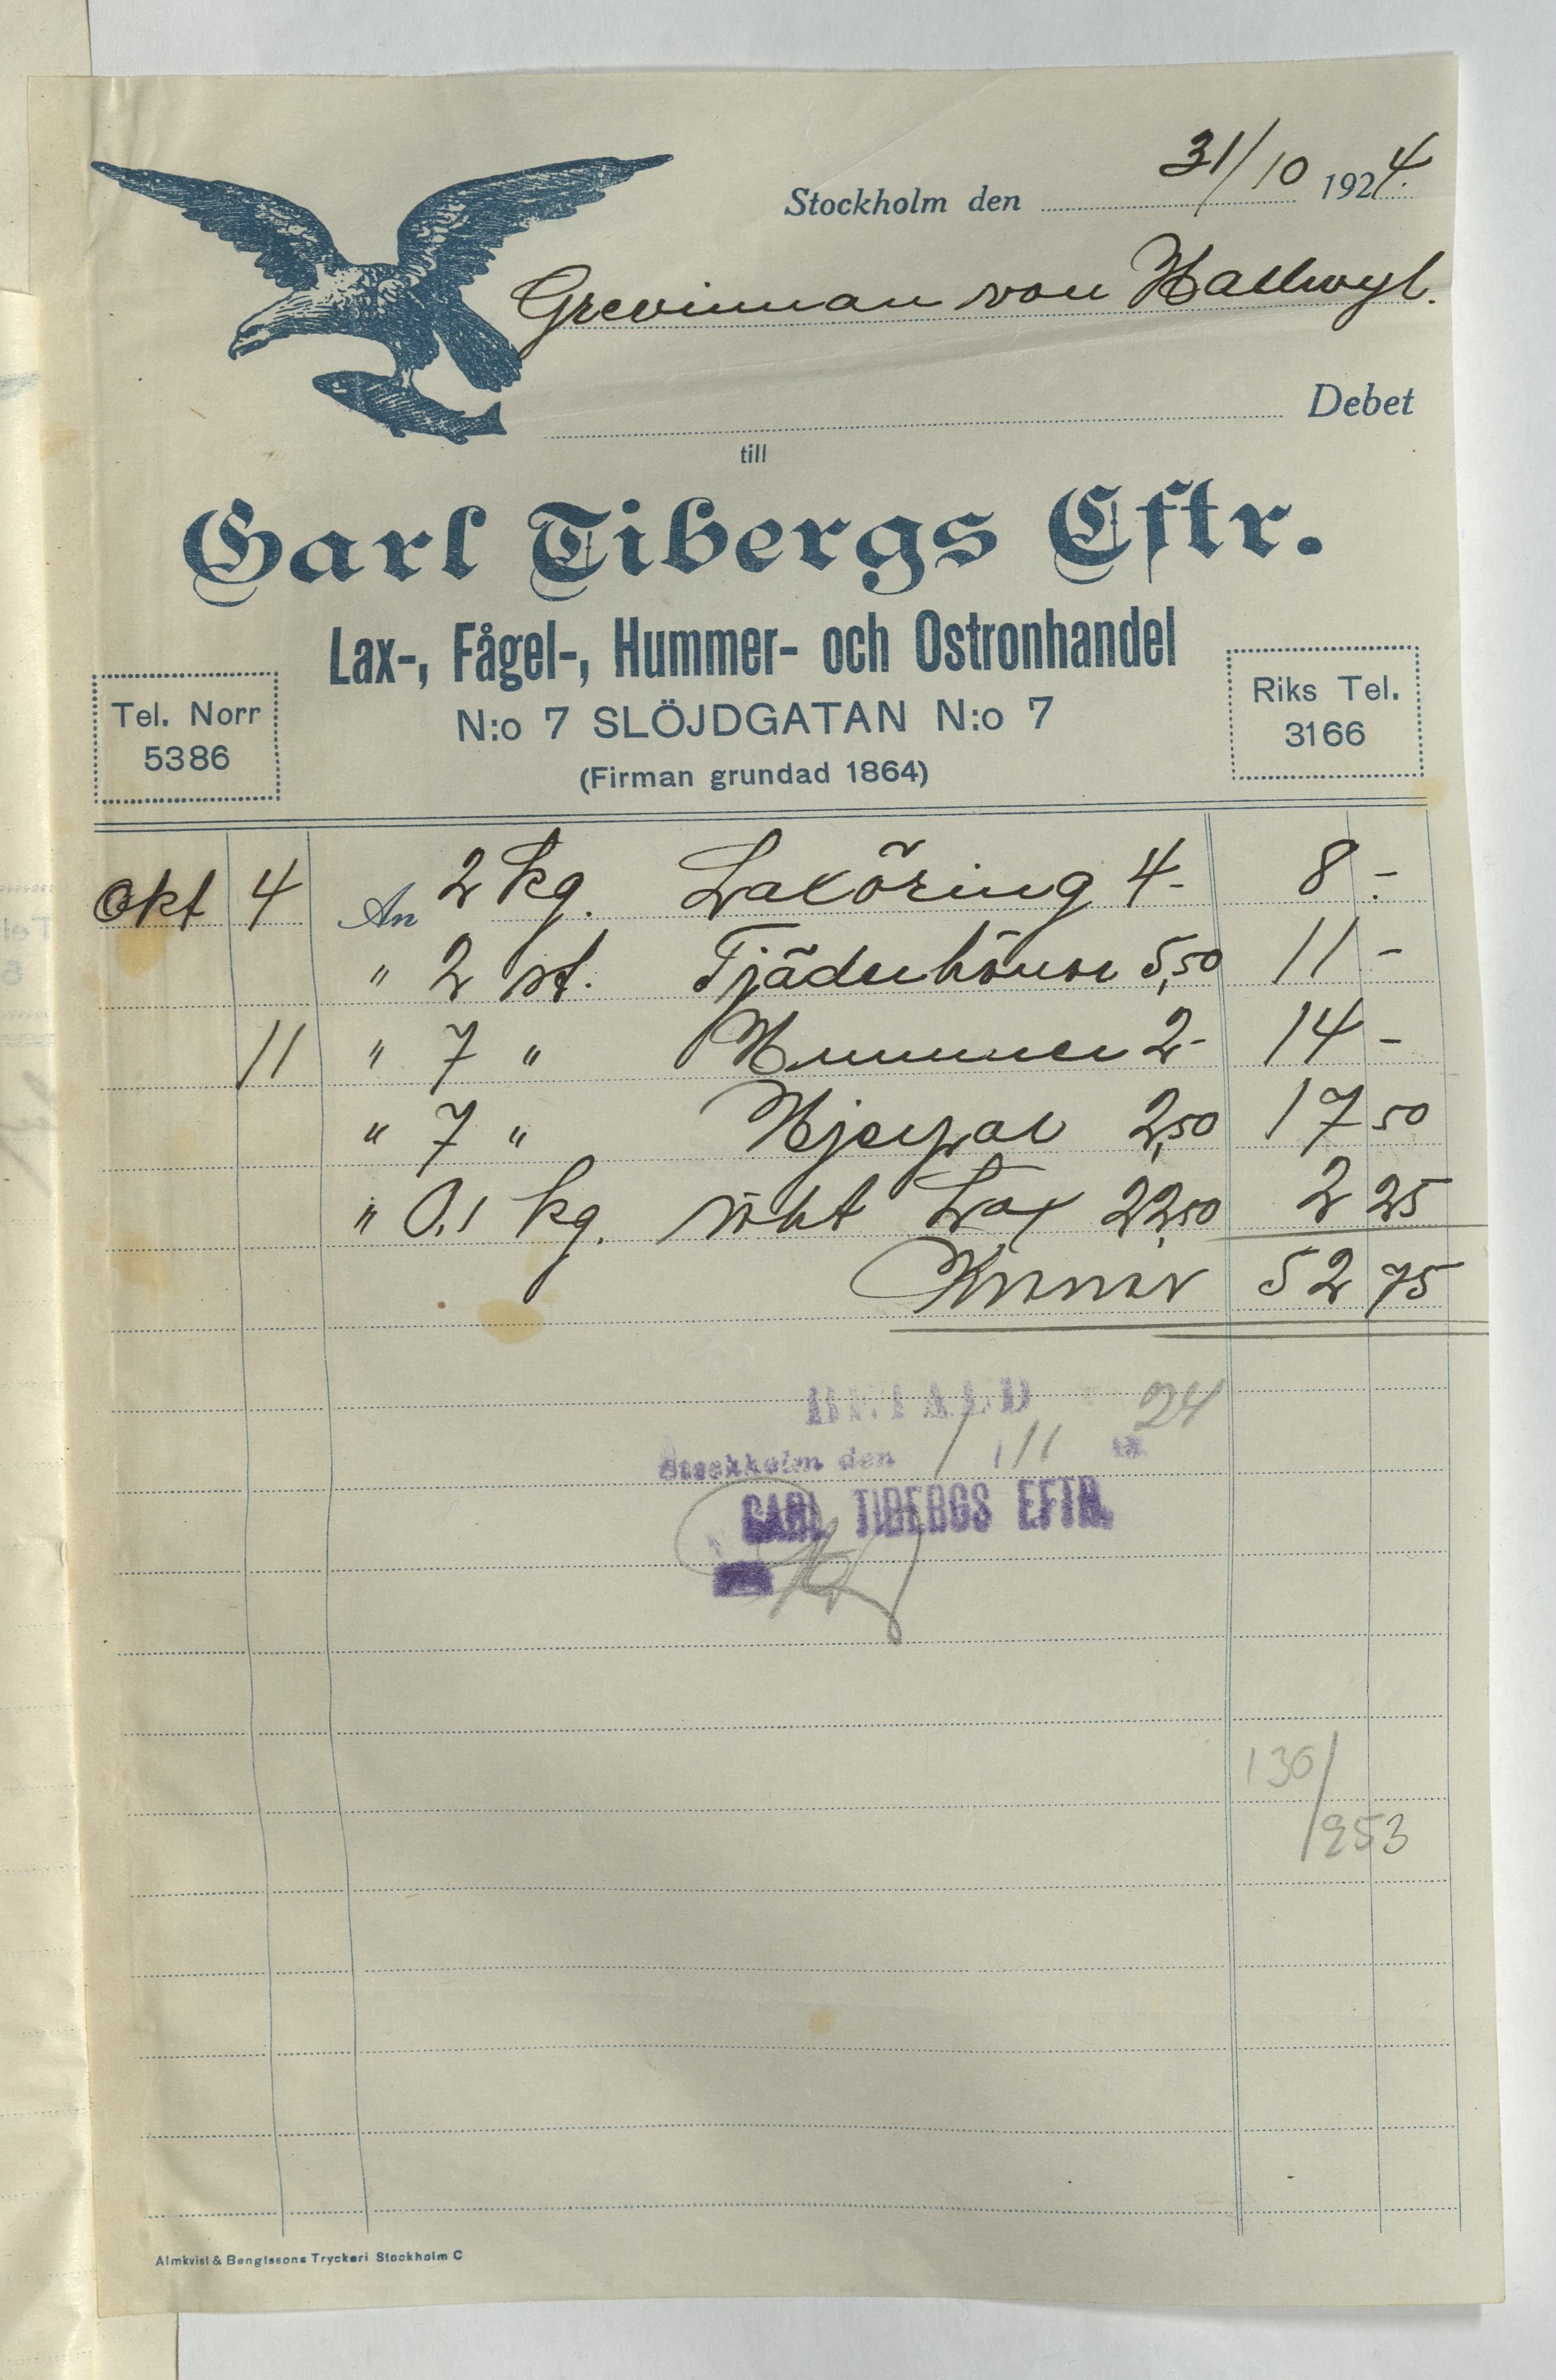 Stockholm den 31/10 1924.
Grevinnan von Hallwyl.
Debet
till
Carl Tibergs Eftr.
Lax-, Fågel-, Hummer- och Ostronhandel
Tel. Norr
5386
N:o 7 SLÖJDGATAN N:o 7
Riks Tel.
3166
(Firman grundad 1864)
Okt 4 An 2 kg. Laxöring 4- 8 -
" 2 st. Tjäderhönor 5,50 11 -
11 " 7 " Hummer 2- 14 -
" 7 " Hjerpar 2,50 17 50
" 0,1 kg. rökt Lax 22,50 2 25
Kronor 52 75
BETALD
Stockholm den 1/11 1924
CARL TIBERGS EFTR.
130/
/253
Almkvist & Bengtssons Tryckeri Stockholm C